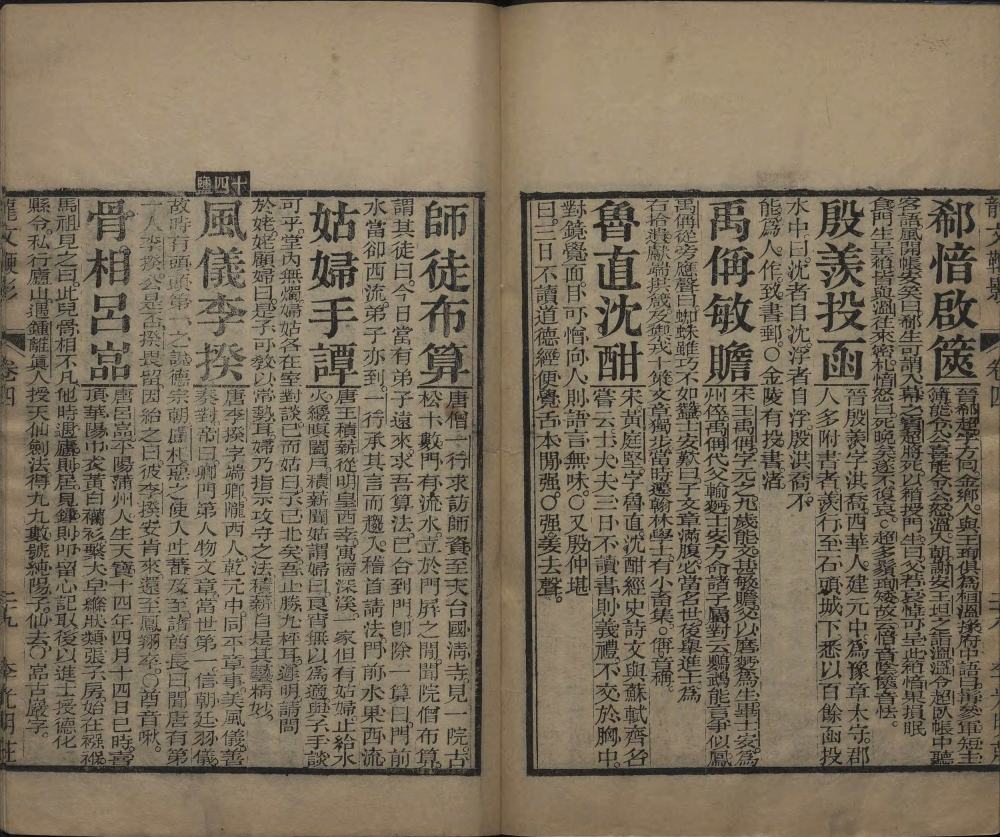 郗愔啟篋
晉郗超字方回金鄉人與王珣俱為桓溫掾府中語曰髯參軍短主
簿能令公喜能令公怒溫入朝謝安王坦之詣溫溫令超臥帳中聽
客語風開帳安笑曰郗生可謂入幕之賓超將死以箱授門生曰父若哀悼可呈此箱愔果損眠
食門生呈箱皆與溫往來密札愔怒曰死晚矣遂不復哀
殷羨投函
晉殷羨字洪喬西華人建元中為豫章太守郡
人多附書者羨行至石頭城下悉以百餘函投
水中曰沈者自沈浮者自浮殷洪喬不
能為人作致書郵○金陵有投書渚
禹偁敏贍
宋王禹偁字元之九歲能文甚敏贍父以磨麪為生畢士安為
州倅禹偁代父輸麪士安方命諸子屬對云鸚鵡能言爭似鳳
禹偁從旁應聲曰蜘蛛雖巧不如蠶士安歎曰子文章滿腹必當名世後舉進士為
右拾遺獻端拱箴及禦戎十策文章獨步當時遷翰林學士有小畜集○偁音稱
魯直沈酣
宋黃庭堅字魯直沈酣經史詩文與蘇軾齊名
嘗云士大夫三日不讀書則義禮不交於胸中
對鏡覺面目可憎向人則語言無味○又殷仲堪
曰三日不讀道德經便覺舌本間强○强姜去聲
師徒布算
唐僧一行求訪師資至天台國淸寺見一院古
松十數門有流水立於門屏之間聞院僧布算
謂其徒曰今日當有弟子遠來求吾算法已合到門卽除一算曰門前
水當卻西流弟子亦到一行承其言而趨入稽首請法門前水果西流
姑婦手譚
唐王積薪從明皇西幸寓宿深溪一家但有姑婦止給水
火纔暝闔戶積薪聞姑謂婦曰良宵無以為適與子手談
可乎堂內無燭婦姑各在室對談已而姑曰子已北矣吾止勝九枰耳遲明請問
於姥姥顧婦曰是子可敎以常勢耳婦乃指示攻守之法積薪自是其藝精妙
十四鹽
風儀李揆
唐李揆字端卿隴西人乾元中同平章事美風儀善
奏對帝曰卿門第人物文章當世第一信朝廷羽儀
故時有頭頭第一之譏德宗朝盧杞惡之使入吐蕃及至諸酋長曰聞唐有第
一人李揆公是否揆畏留因紿之曰彼李揆安肯來還至鳳翔卒○酋音啾
骨相呂嵓
唐呂嵓平陽蒲州人生天寶十四年四月十四日巳時喜
頂華陽巾衣黃白襴衫繫大皁絛狀類張子房始在襁褓
馬祖見之曰此兒骨相不凡他時遇廬則居見鍾則叩留心記取後以進士授德化
縣令私行廬山遇鍾離真人授天仙劍法得九九數號純陽子仙去○嵓古巖字
龍文鞭影
卷四
二九
李光明莊